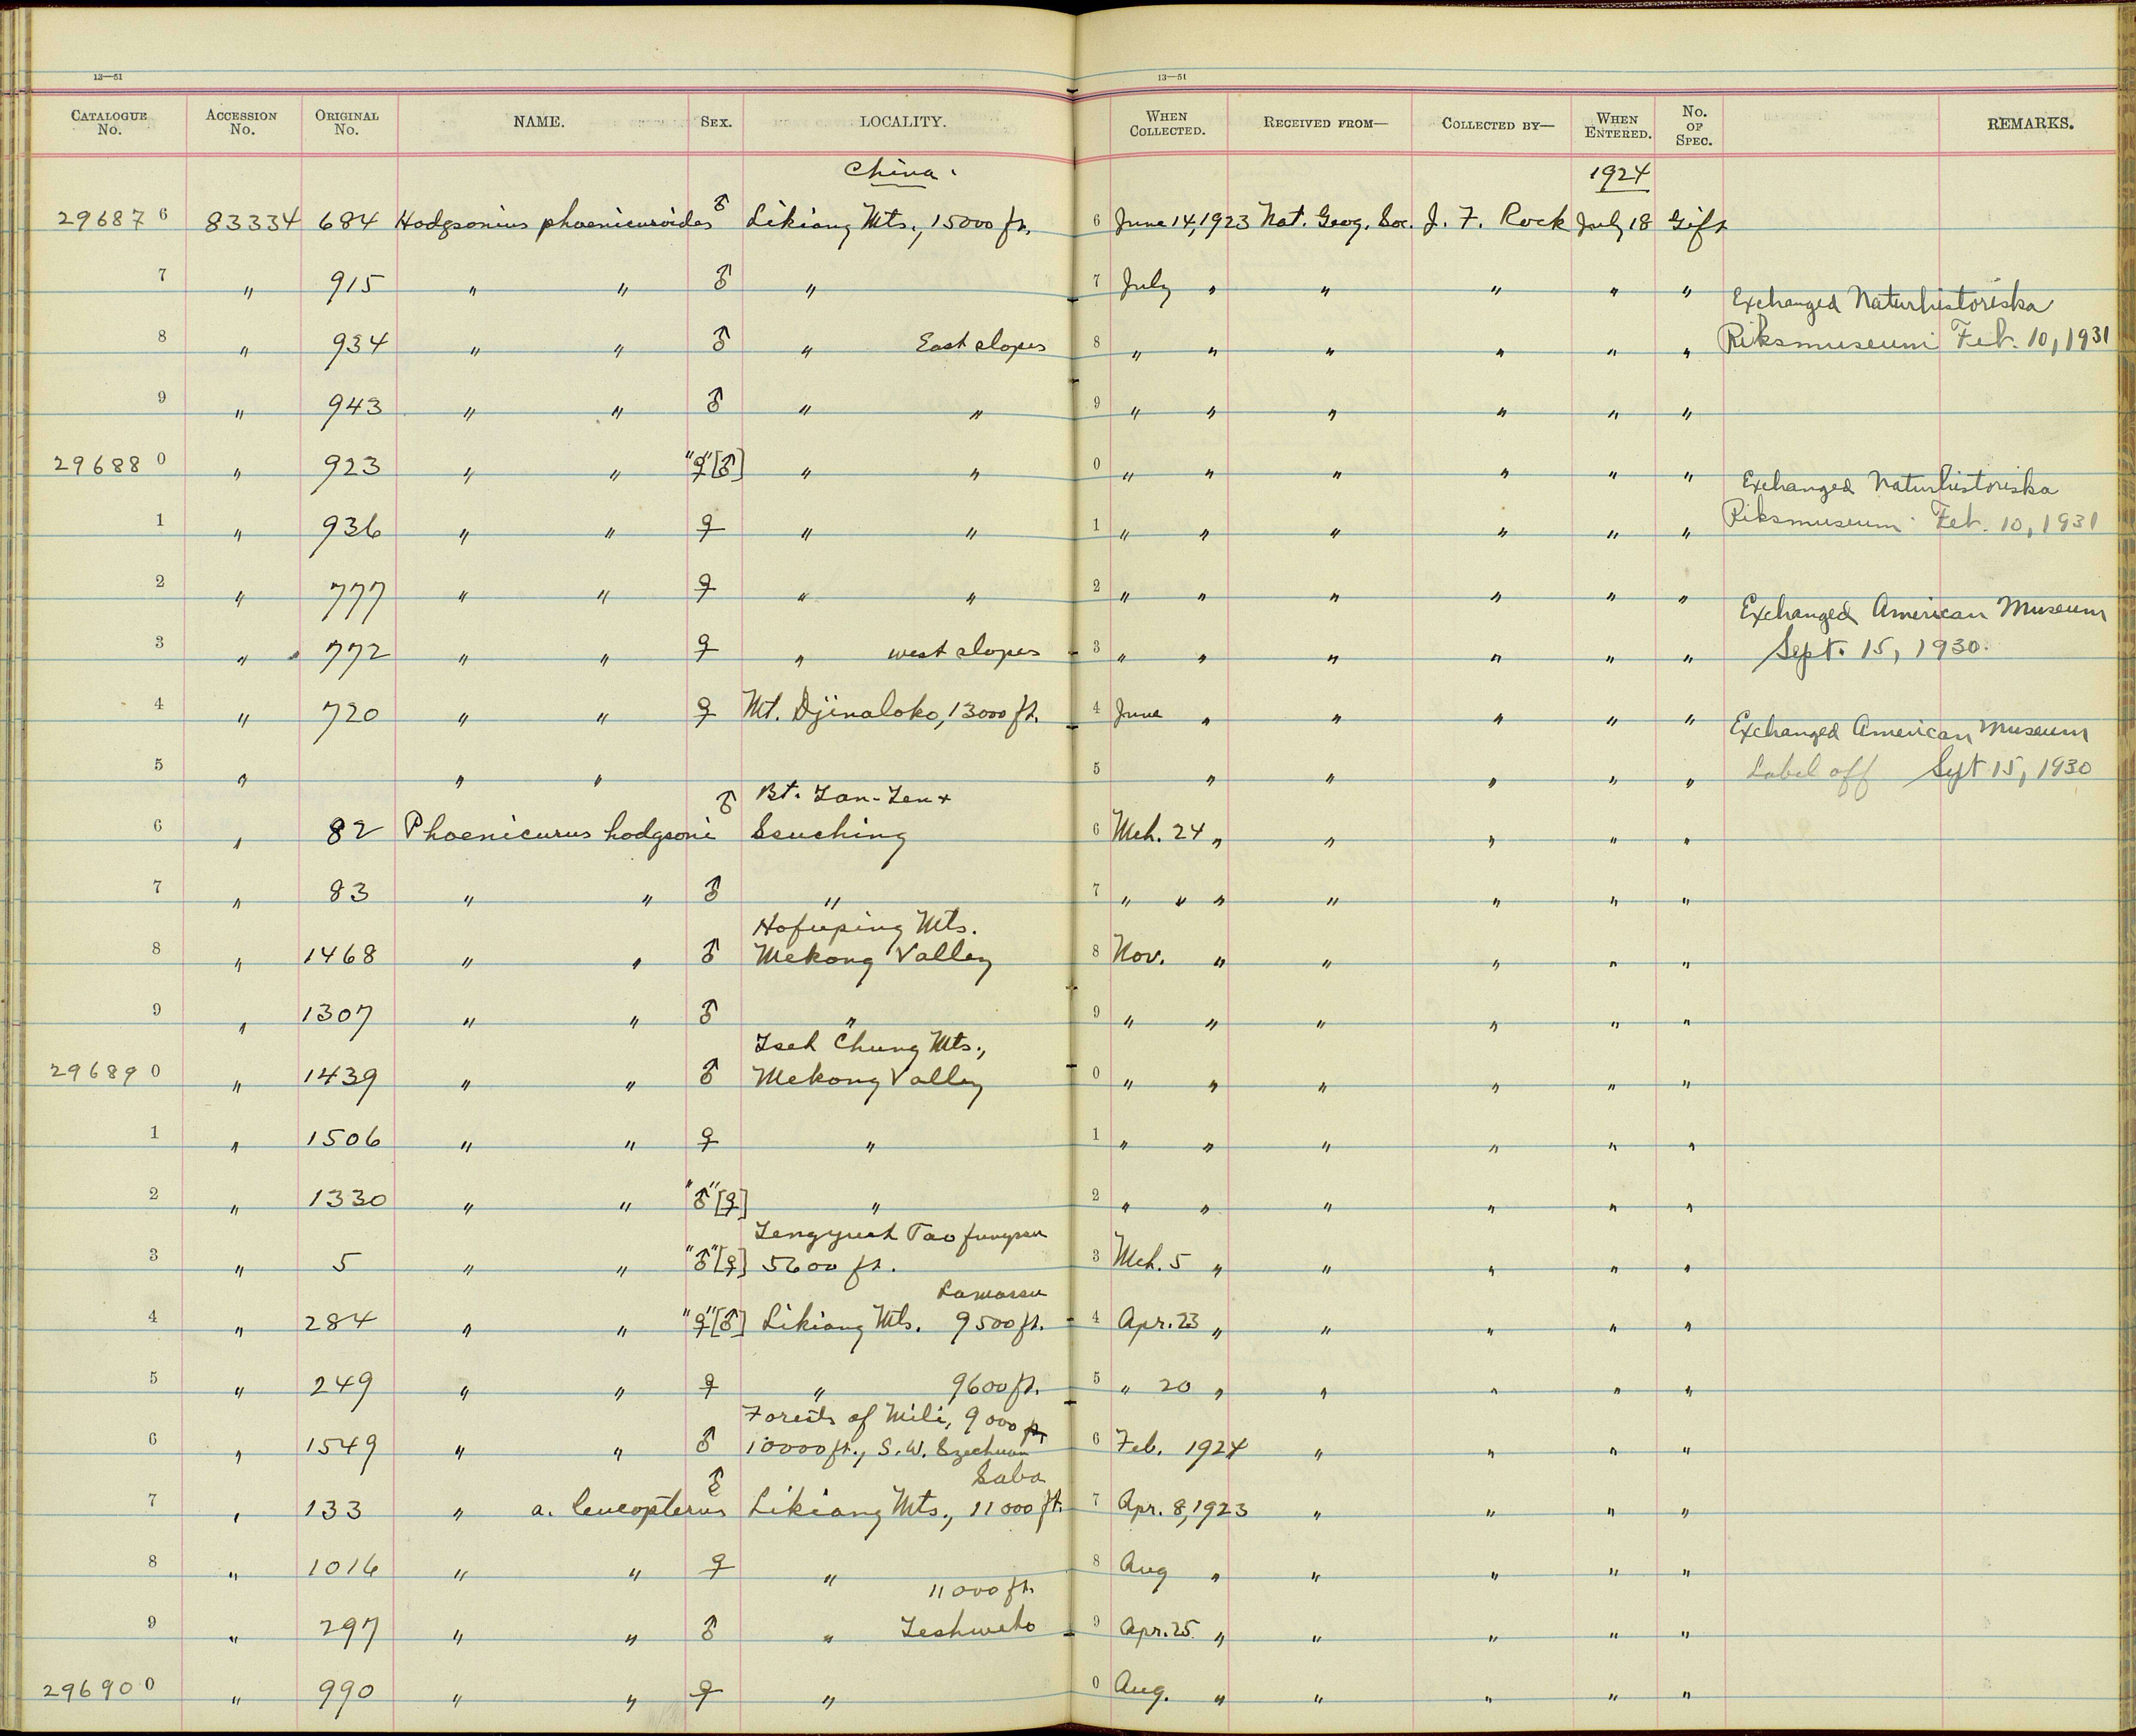 13—51 13—51
CATALOGUE No. ACCESSION No. ORIGINAL No. NAME. SEX. LOCALITY. WHEN COLLECTED. RECEIVED FROM— COLLECTED BY— WHEN ENTERED. No. OF SPEC. REMARKS.
China. 1924
29687 6 83334 684 Hodgsonius phoenicuroides ♂ Likiang Mts., 15000 ft. 6 June 14, 1923 Nat. Geog. Soc. J. F. Rock July 18 Gift
7 " 915 " " ♂ " 7 July " " " " "
Exchanged Naturhistoriska
8 " 934 " " ♂ " East slopes 8 " " " " " " Riksmuseum Feb. 10, 1931
9 " 943 " " ♂ " " 9 " " " " " "
29688 0 " 923 " " "♀"[♂] " " 0 " " " " " "
Exchanged Naturhistoriska
1 " 936 " " ♀ " " 1 " " " " " " Riksmuseum Feb. 10, 1931
2 " 777 " " ♀ " " 2 " " " " " "
Exchanged American Museum
3 " 772 " " ♀ " west slopes 3 " " " " " " Sept. 15, 1930.
4 " 720 " " ♀ Mt. Djinaloko, 13000 ft. 4 June " " " " "
Exchanged American Museum
5 " " " 5 " " " " " Label off Sept 15, 1930
Bt. Tan-Zen +
6 " 82 Phoenicurus hodgsoni ♂ Ssuching 6 Mch. 24 " " " " "
7 " 83 " " ♂ " 7 " " " " " " "
Hofuping Mts.
8 " 1468 " " ♂ Mekong Valley 8 Nov. " " " " "
9 " 1307 " " ♂ " 9 " " " " " "
Tseh Chung Mts.,
29689 0 " 1439 " " ♂ Mekong Valley 0 " " " " " "
1 " 1506 " " ♀ " 1 " " " " " "
2 " 1330 " " "♂"[♀] " 2 " " " " " "
Tengyueh Taofungssu
3 " 5 " " "♂"[♀] 5600 ft. 3 Mch. 5 " " " " "
Lamassu
4 " 284 " " "♀"[♂] Likiang Mts. 9500 ft. 4 Apr. 23 " " " " "
5 " 249 " " ♀ " 9600 ft. 5 " 20 " " " " "
Forests of Mili, 9000 ft
6 " 1549 " " ♂ 10000 ft., S.W. Szechuan 6 Feb. 1924 " " " "
Saba
7 " 133 " a. leucopterus ♂ Likiang Mts., 11000 ft. 7 Apr. 8, 1923 " " " "
8 " 1016 " " ♀ " 8 Aug " " " " "
11000 ft.
9 " 297 " " ♂ " Teshweto 9 Apr. 25 " " " " "
29690 0 " 990 " " ♀ " 0 Aug. " " " " "